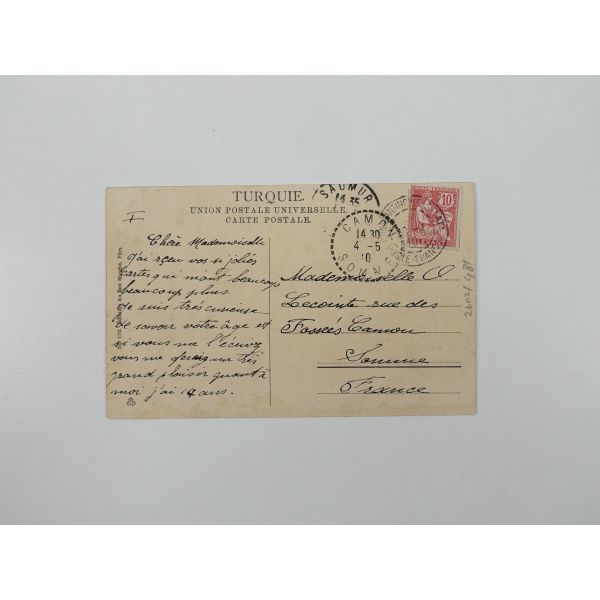 TURQUIE.
UNION POSTALE UNIVERSELLE.
CARTE POSTALE.
Chère Mademoiselle
J'ai reçeu vos si jolies
cartes qui m'ont beaucoup
beaucoup plus.
Je suis très curieuse
de savoir votre âge et
si vous me l'écrivez
vous me ferois un très
grand plaisir quant à
moi j'ai 14 ans.
SAUMUR
14 35
CAMON
14 30
4 - 5
10
SOMME
10
LEVANT
Mademoiselle O.
Lecointe rue des
Fossées Camon
Somme
France